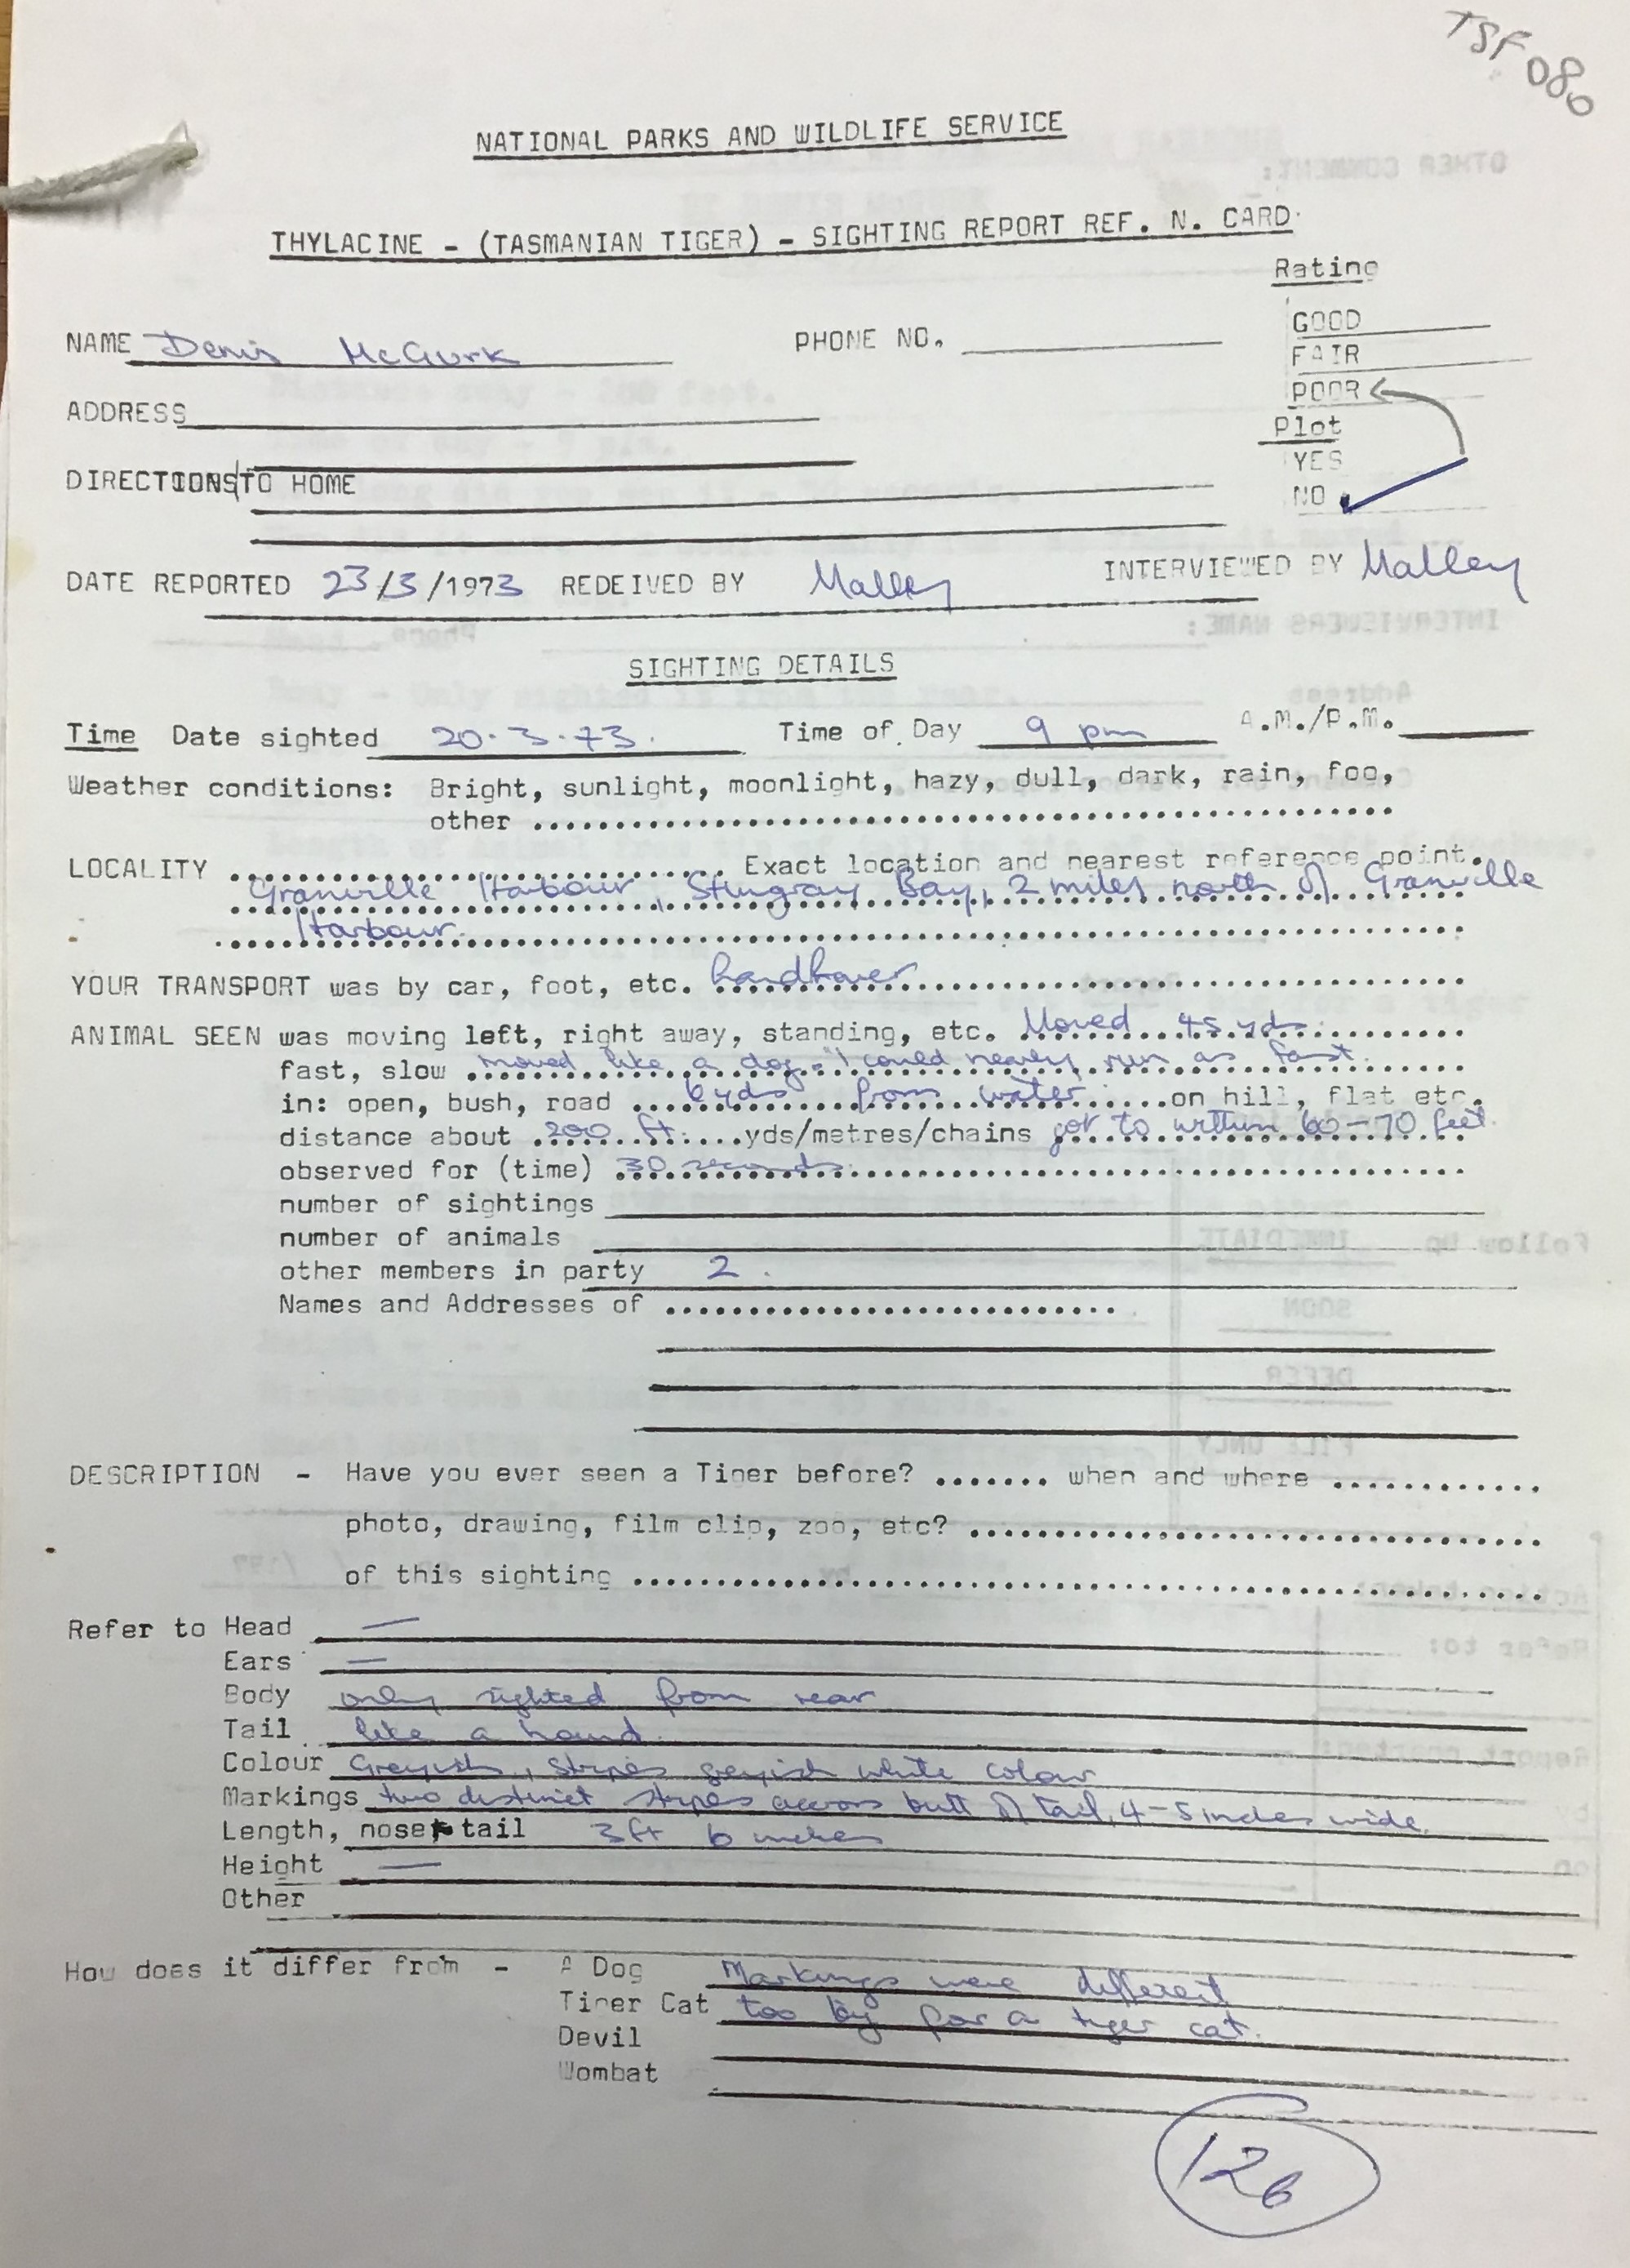 TSF 080
NATIONAL PARKS AND WILDLIFE SERVICE
THYLACINE - (TASMANIAN TIGER) - SIGHTING REPORT REF. N. CARD.
Rating
GOOD
FAIR
POOR
Plot
YES
NO
NAME Denis McGurk PHONE NO.
ADDRESS
DIRECTIONS TO HOME
DATE REPORTED 23/3/1973 REDEIVED BY Malley INTERVIEWED BY Malley
SIGHTING DETAILS
Time Date sighted 20.3.73. Time of Day 9 pm A.M./P.M.
Weather conditions: Bright, sunlight, moonlight, hazy, dull, dark, rain, fog,
other
LOCALITY Exact location and nearest reference point.
Granville Harbour, Stingray Bay, 2 miles north of Granville
Harbour.
YOUR TRANSPORT was by car, foot, etc. Landrover
ANIMAL SEEN was moving left, right away, standing, etc. Moved 45 yds.
fast, slow moved like a dog - "I could nearly run as fast.
in: open, bush, road 6 yds from water on hill, flat etc.
distance about 200 ft. yds/metres/chains got to within 60-70 feet.
observed for (time) 30 seconds.
number of sightings
number of animals
other members in party 2.
Names and Addresses of
DESCRIPTION - Have you ever seen a Tiger before? when and where
photo, drawing, film clip, zoo, etc?
of this sighting
Refer to Head —
Ears —
Body only sighted from rear
Tail like a hound.
Colour Greyish, stripes greyish white colour
Markings two distinct stripes across butt of tail, 4-5 inches wide.
Length, nose tail 3ft 6 inches
Height —
Other
How does it differ from - A Dog Markings were different
Tiger Cat too big for a tiger cat.
Devil
Wombat
126